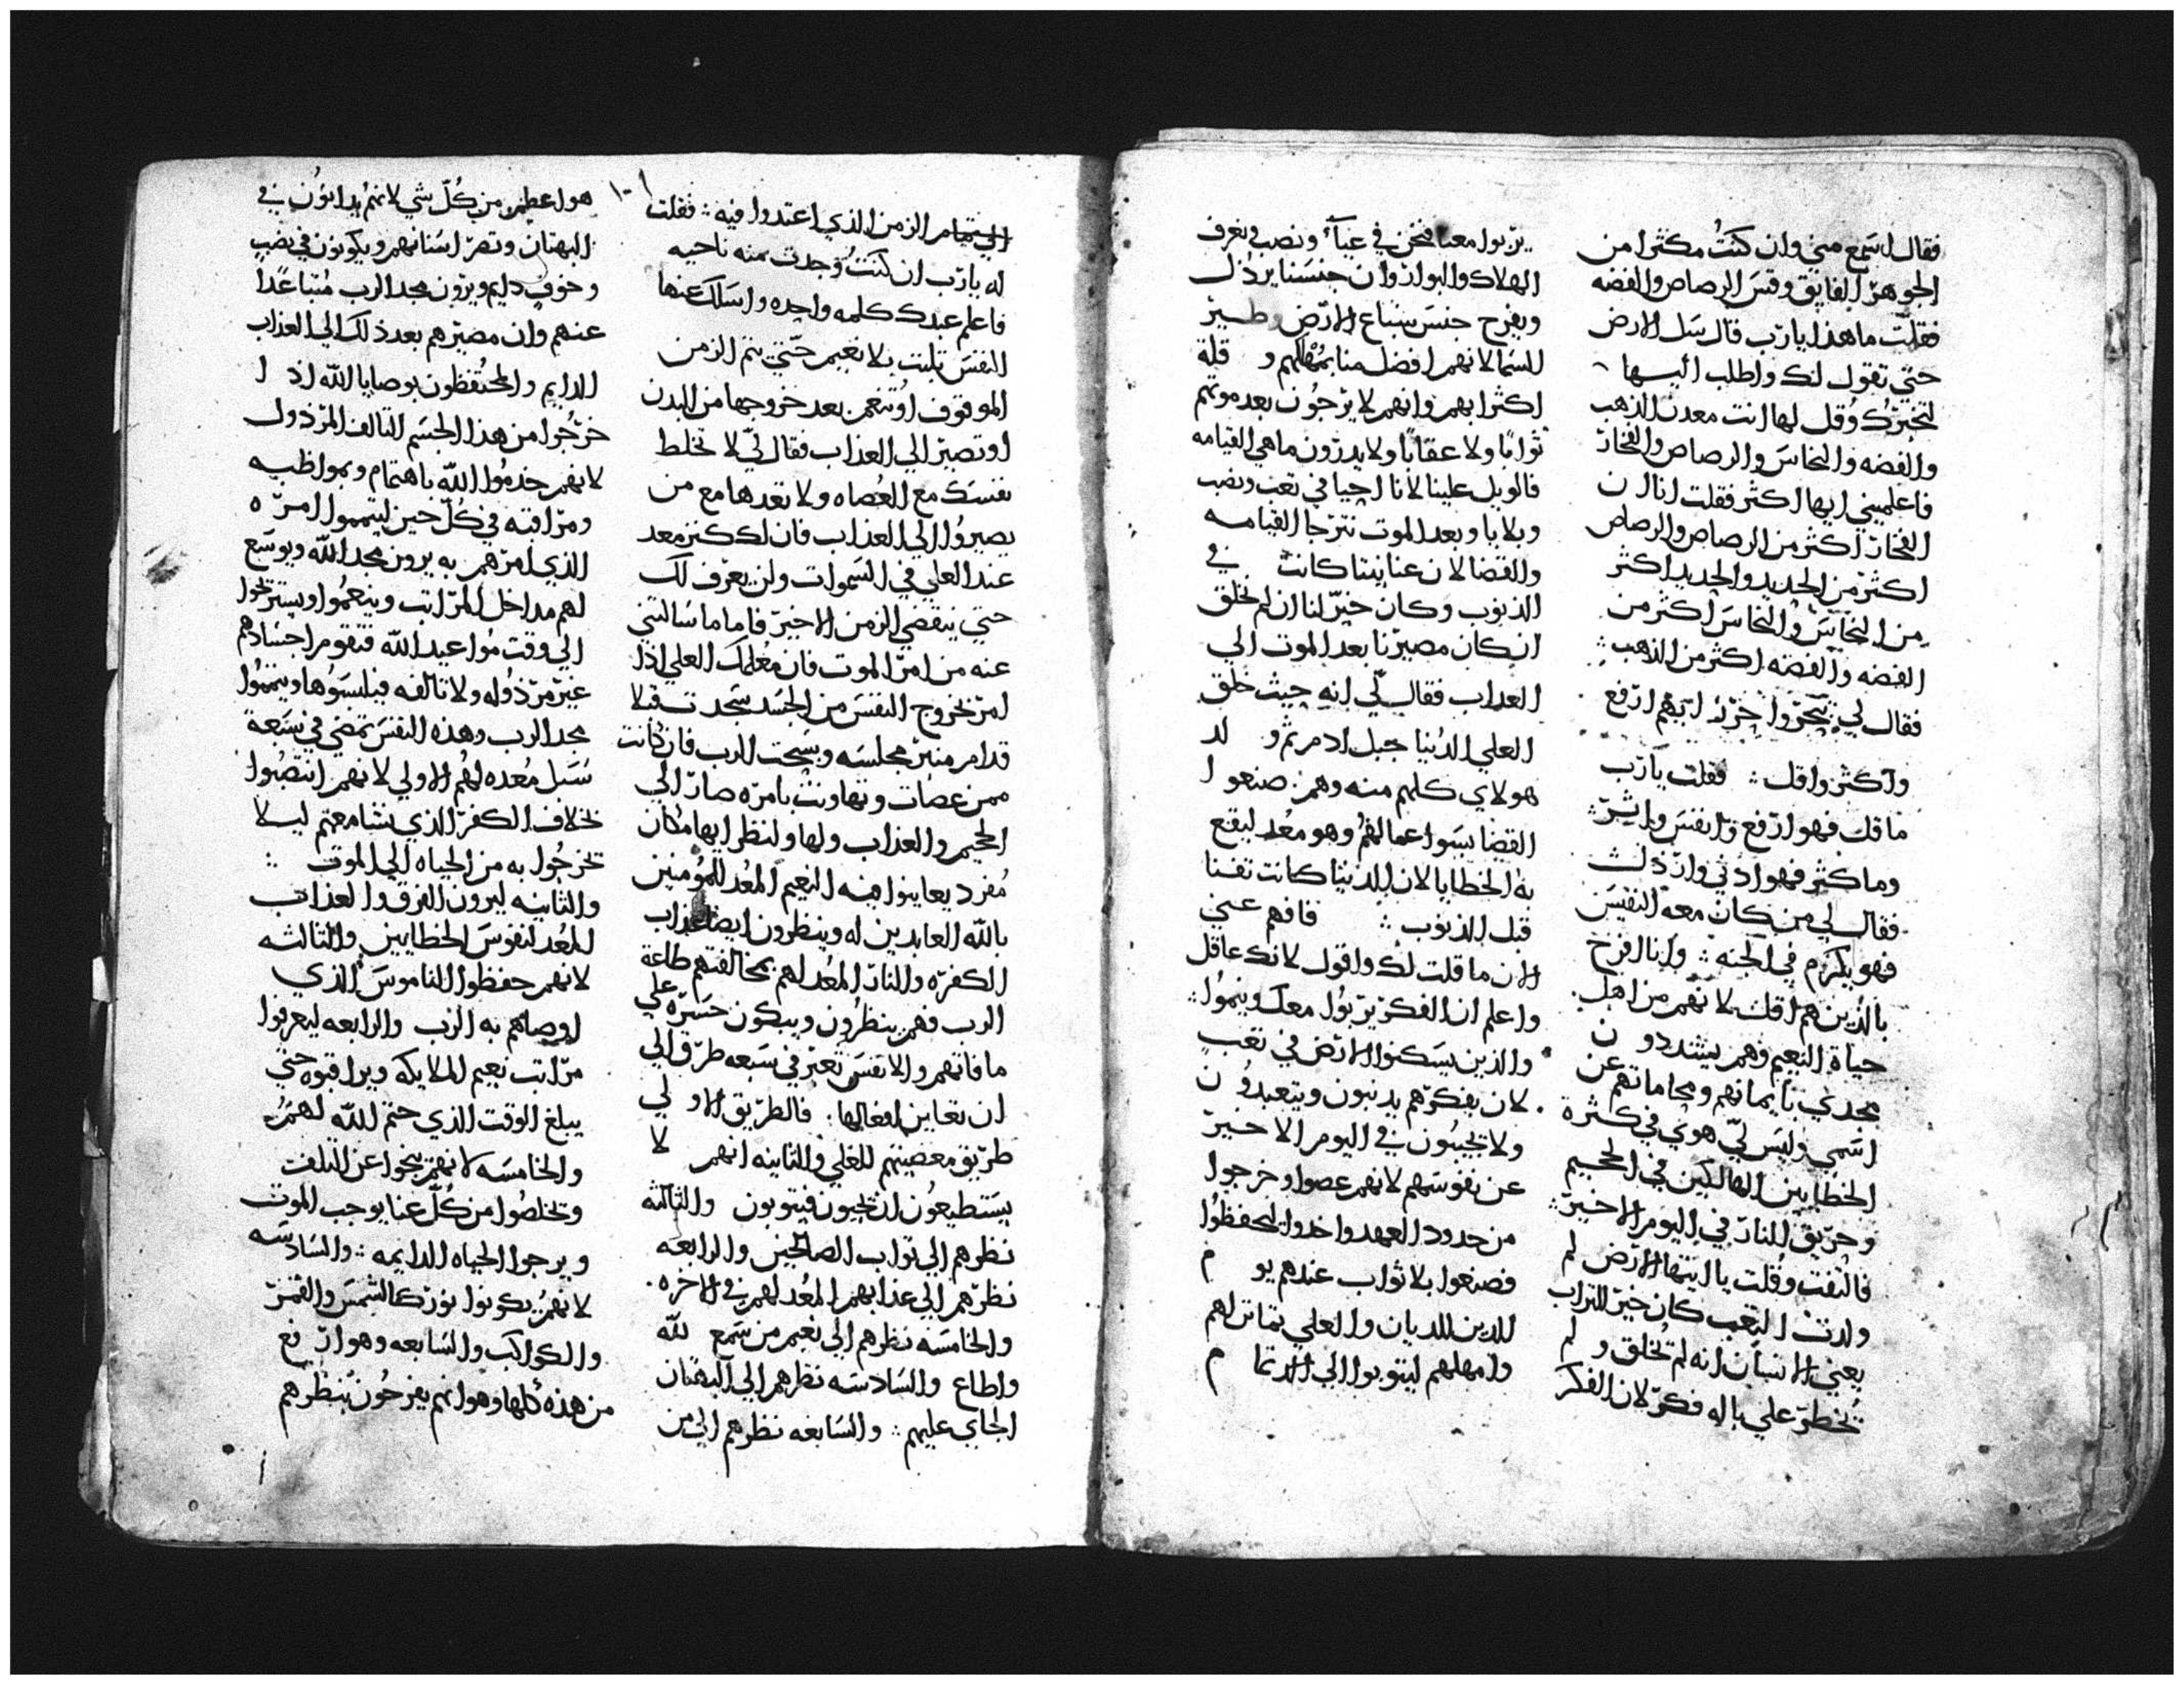 فقال اسمع مني وان كنت مكثرا من
الجوهر الفايق وقس الرصاص والفضه
فقلت ما هذا يا رب قال سل الارض
حتى تقول لك واطلب اليها
لتخبرك وقل لها انت معدن الذهب
والفضه والنحاس والرصاص والفخار
فاعلميني ايها اكثر فقلت انا ان
الفخار اكثر من الرصاص والرصاص
اكثر من الحديد والحديد اكثر
من النحاس والنحاس اكثر من
الفضه والفضه اكثر من الذهب
فقال لي ايهم ارفع
واكثر واقل فقلت يا رب
ما قل فهو ارفع وانفس
وما كثر فهو ادني وارذل
فقال لي من كان معه النفيس
فهو يكرم في الجنه وانا افرح
بالذين هم اقل لانهم من اهل
حياة النعيم وهم يشددون
مجدي بايمانهم ومحاماتهم عن
اسمي وليس لي هوي في كثرة
الخطايين الهالكين في الجحيم
وحريق النار في اليوم الاخير
فالتفت وقلت يا ايتها الارض لم
ولدت التعب كان خير للتراب
يعني الانسان انه لم تخلق ولم
تخطر علي باله فكر لان الفكر
يربوا معنا فنحن في عيآء ونصب ونعرف
الهلاك والبوار وان جنسنا يرذل
ويفرح جنس سباع الارض وطير
السما لانهم افضل منا وقلة
اكترابهم وانهم لا يرجون بعد موتهم
ثوابا ولا عقابا ولا يدرون ما هي القيامه
فالويل علينا لاننا احيا في تعب ونصب
وبلايا وبعد الموت نترجا القيامه
والقضا لان كانت في
الذنوب وكان خير لنا ان لم نخلق
ان كان مصيرنا بعد الموت الي
العداب فقال لي انه حيث خلق
العلي الدنيا جبل ادم ثم ولد
هولاي كلهم منه وهم صنعوا
القضا بسوا اعمالهم وهو معد ليقع
به الخطايا لان الدنيا كانت تفنا
قبل الذنوب فافهم عني
الان ما قلت لك واقول لانك عاقل
واعلم ان الفكر يربوا معك وينموا
والذين يسكنوا الارض في تعب
لان بفكرهم يدنبون ويتعبدون
ولا يجيبون في اليوم الاخير
عن نفوسهم لانهم عصوا وخرجوا
من حدود العهد واخدوا ليحفظوا
فصنعوا بلا ثواب عندهم يوم
الدين للديان والعلي لهم
وامهلهم ليتوبوا الي التمام
الي تمام الزمن الذي اعتدوا فيه فقلت
له يا رب ان كنت وجدت منه ناحيه
فاعلم عبدك كلمه واحده واسلك عنها
النفس تلبث بلا نعيم حتي يتم الزمن
الموقوف او تنعم بعد خروجها من البدن
او تصير الي العداب فقال لي لا تخلط
نفسك مع العصاه ولا تعدها مع من
يصيروا الي العداب فان لك كنز معد
عند العلي في السموات ولن يعرف لك
حتي ينقضي الزمن الاخير فاما ما سالتني
عنه من امر الموت فان معلمك العلي اذا
امر بخروج النفس من الجسد سجدت
قدام منبر مجلسه وسبحت الرب فان كانت
ممن عصات وتهاونت بامره صار الي
الجحيم والعداب ولها ولنظرايها مكان
مفرد يعاينوا منه النعيم المعد للمومنين
بالله العابدين له وينظرون ايضا عداب
الكفره والنار المعد لهم بمخالفتهم طاعة
الرب فهم ينظرون ويبكون حسره علي
ما فاتهم والانفس تعبر في سبعه طرق الي
ان تعاين افعالها فالطريق الاولي
طريق معصيتهم للعلي والثانيه انهم لا
يستطيعون ان يحيون فيتوبون والثالثه
نظرهم الي ثواب الصالحين والرابعه
نظرهم الي عذابهم المعد لهم في الاخره
والخامسه نظرهم الي نعيم من سمع لله
واطاع والسادسه نظرهم الي البهتان
الجاي عليهم والسابعه نظرهم الي من
هو اعظم من كل شي لانهم يدانون في
البهتان وتصر اسنانهم ويكونون في نصب
وخوف دايم ويرون مجد الرب متباعدا
عنهم وان مصيرهم بعد ذلك الي العذاب
الدايم والمحتفظون بوصايا الله اذا
خرجوا من هذا الجسم التالف المرذول
لانهم خدموا الله باهتمام وبمواظبه
ومراقبه في كل حين ليتمموا امره
الذي امرهم به يرون مجد الله ويوسع
لهم مداخل المراتب وينعموا ويستريحوا
الي وقت مواعيد الله فتقوم اجسادهم
غير مرذوله ولا تالفه فيلبسوها ويتمموا
مجد الرب وهذه النفس تمضي في سبعة
سبل معده لهم الاولي لانهم انتصبوا
بخلاف الكفر الذي نشا معهم ليلا
تخرجوا به من الحياه الي الموت
والثانيه ليرون الفرق والعذاب
المعد لنفوس الخطايين والثالثه
لانهم حفظوا الناموس الذي
اوصاهم به الرب والرابعه ليعرفوا
مراتب نعيم الملايكه ويراقبوه حتي
يبلغ الوقت الذي حتم الله لهم
والخامسه لانهم نجوا عن التلف
وتخلصوا من كل عنا يوجب الموت
ويرجوا الحياه الدايمه والسادسه
لانهم يكونوا نور كالشمس والقمر
والكواكب والسابعه وهو ارفع
من هذه كلها وهو انهم يفرحون بنظرهم